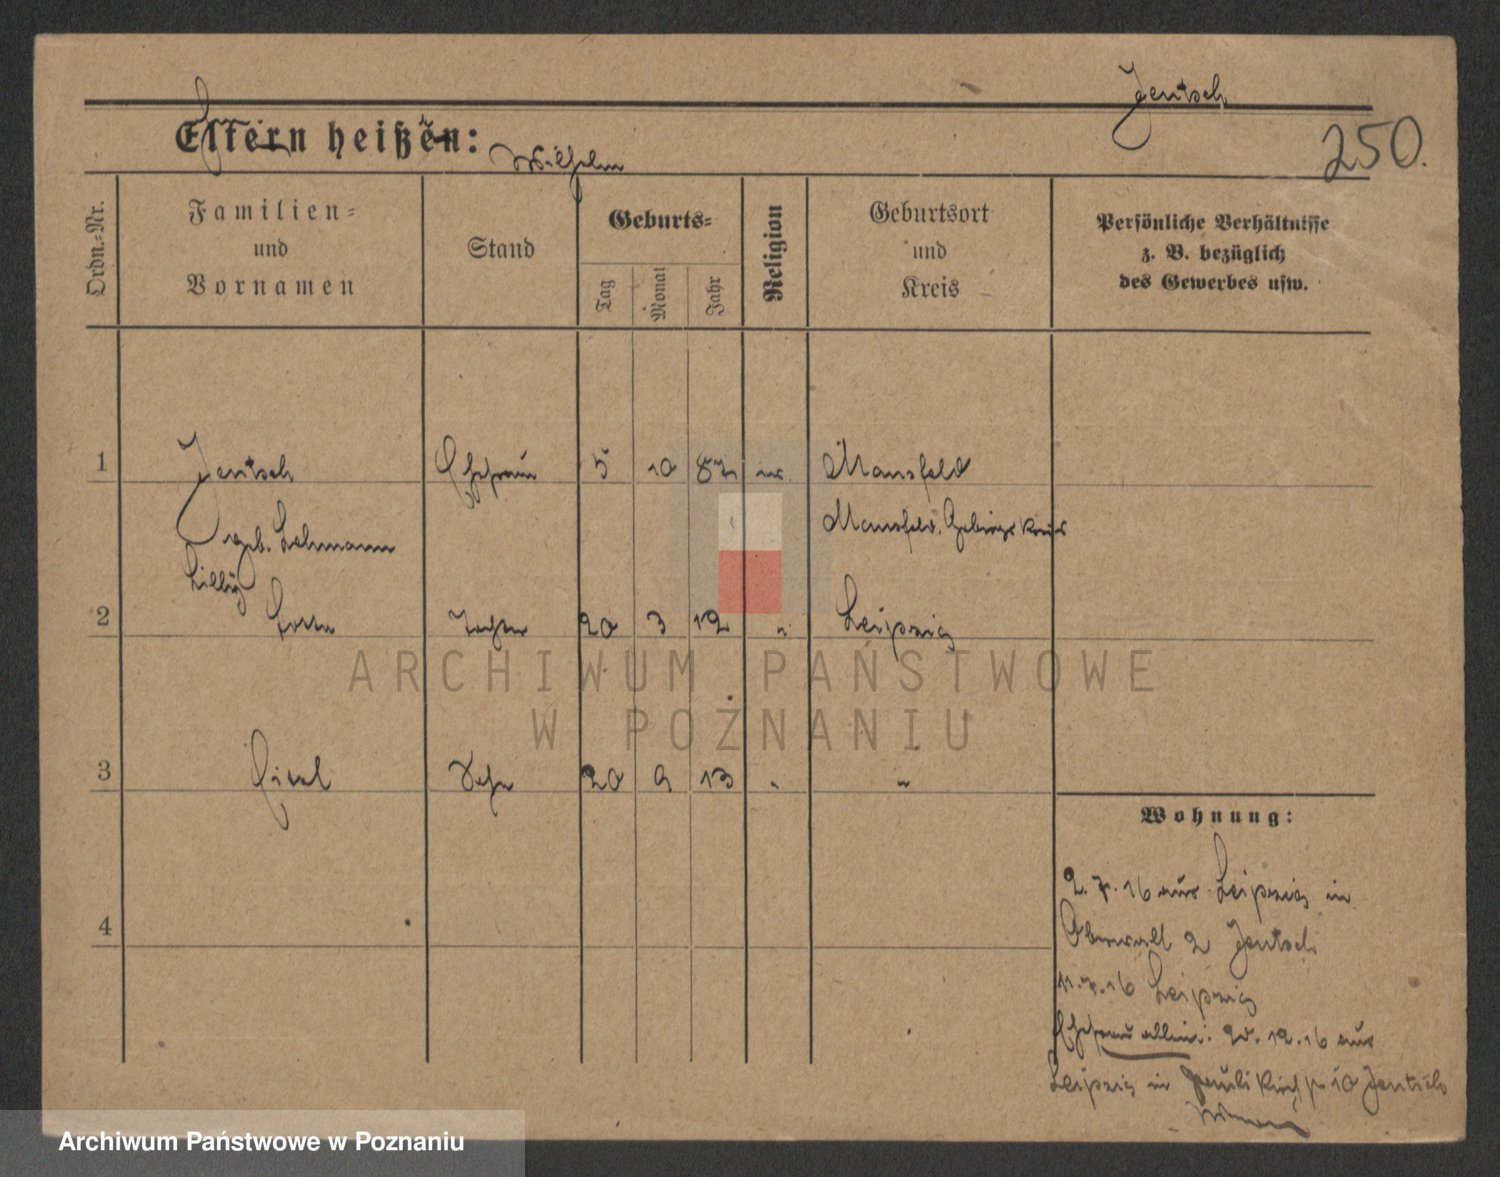 Jentsch
250.
Eltern heißen:
Wilhelm
Ordn.=Nr.
Familien=
und
Vornamen
Stand
Geburts=
Tag
Monat
Jahr
Religion
Geburtsort
und
Kreis
Persönliche Verhältnisse
z. B. bezüglich
des Gewerbes usw.
1 Jentsch Ehefrau 5 10 87 Mansfeld
Mansfeld. Gebirgskreis
geb. Lehmann
Lilly
2 Tochter 20 3 12 " Leipzig
3 Sohn 20 9 13 " "
Wohnung:
2.7.16 aus Leipzig in
2 Jentsch
4
11.7.16 Leipzig
Ehefrau allein: 12.16 aus
Leipzig in Paulikirchstr 10 Jentsch
ARCHIWUM PAŃSTWOWE
W POZNANIU
Archiwum Państwowe w Poznaniu